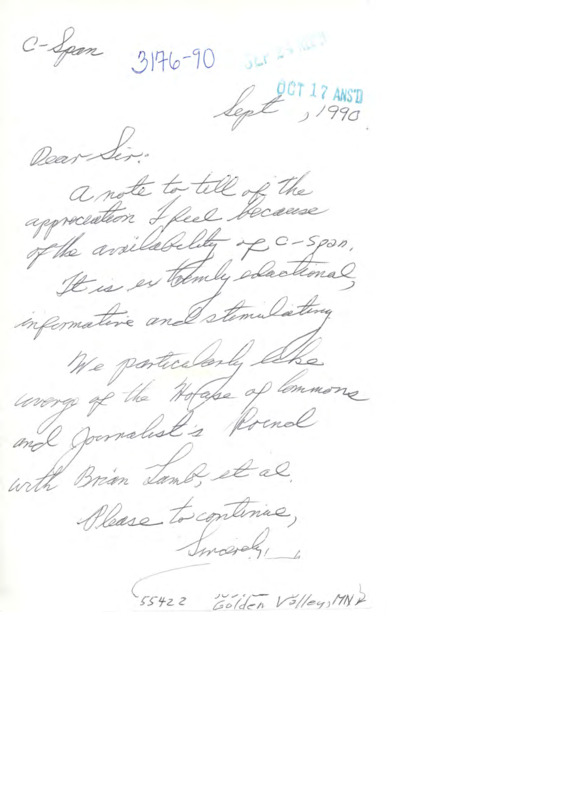 C-Span
3176-90
SEP 24 REC'D
OCT 17 ANS'D
Sept , 1990.
Dear Sir:
A note to tell of the
appreciation I feel because
of the availability of C-Span.
It is extemly eductional,
informative and stimulating
We particularly like
coverge of the House of Commons
and Journalist's Round
with Brian Lamb, et al.
Please to continue,
Sincerely,
55422 Golden Valley, MN